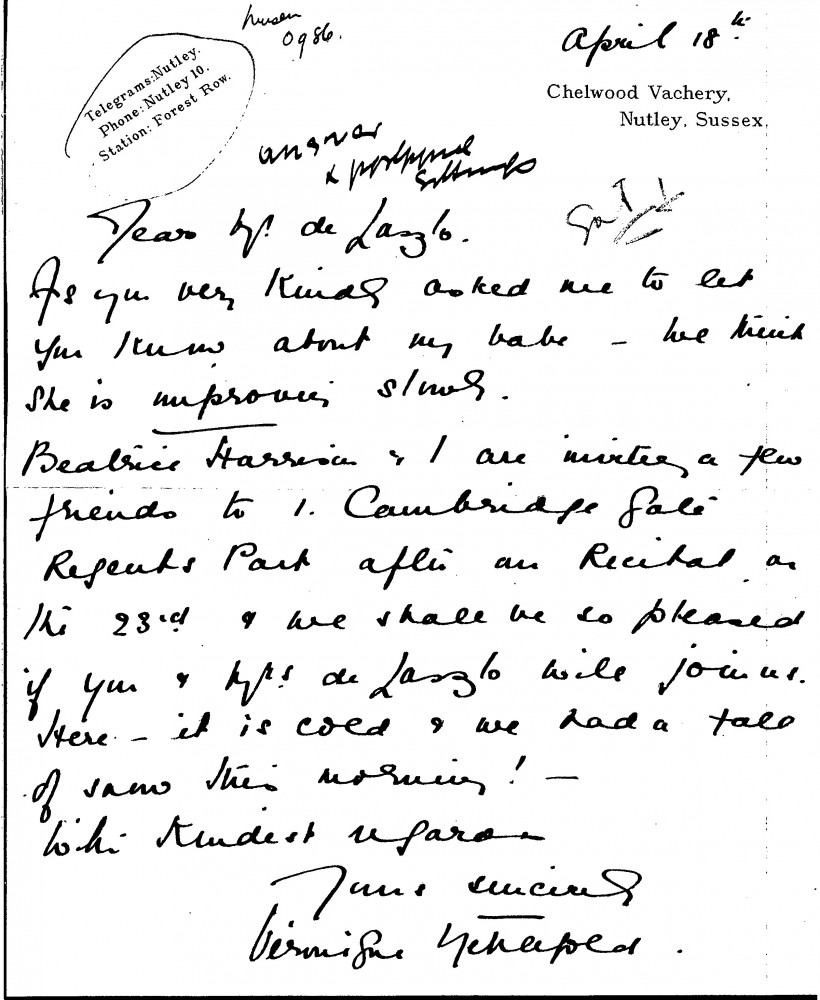 0986.
April 18th
Telegrams: Nutley.
Phone: Nutley 10.
Station: Forest Row.
Chelwood Vachery,
Nutley, Sussex.
answer
& postponed
sittings
Dear Mr. de Laszlo.
As you very kindly asked me to let
you know about my babe – we think
she is improving slowly.
Beatrice Harrison & I are inviting a few
friends to 1. Cambridge Gate
Regents Park after our Recital on
the 23rd & we shall be so pleased
if you & Mrs. de Laszlo will join us.
Here – it is cold & we had a fall
of snow this morning! –
With kindest regards
Yours sincerely
Véronique